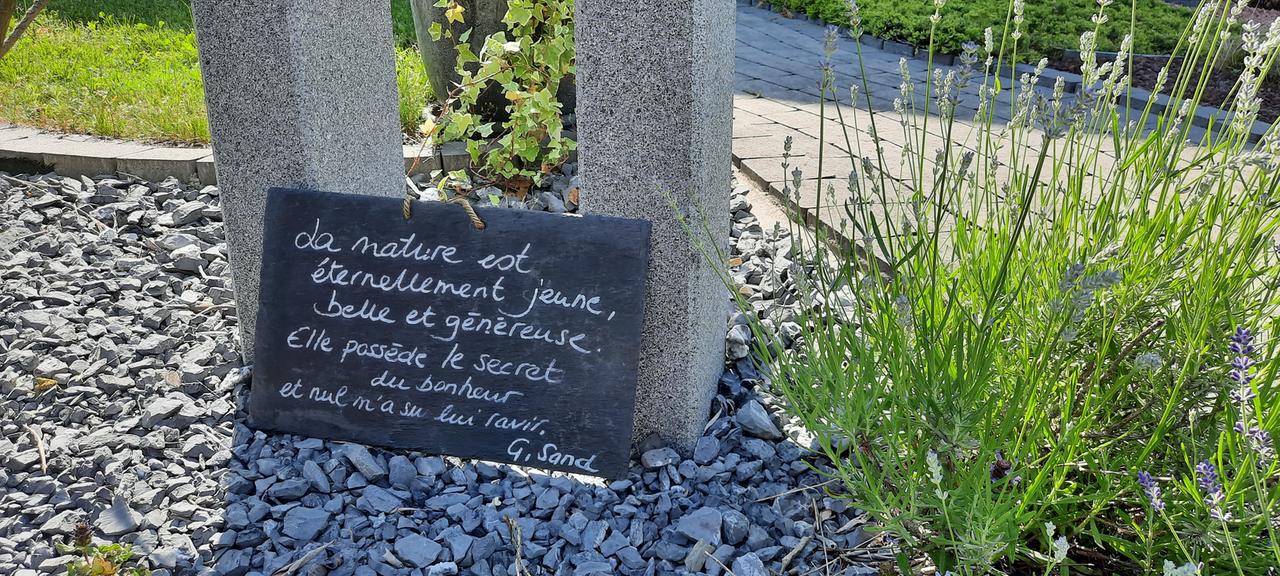 La nature est
éternellement jeune,
belle et généreuse.
Elle possède le secret
du bonheur
et nul n'a su lui ravir.
G. Sand